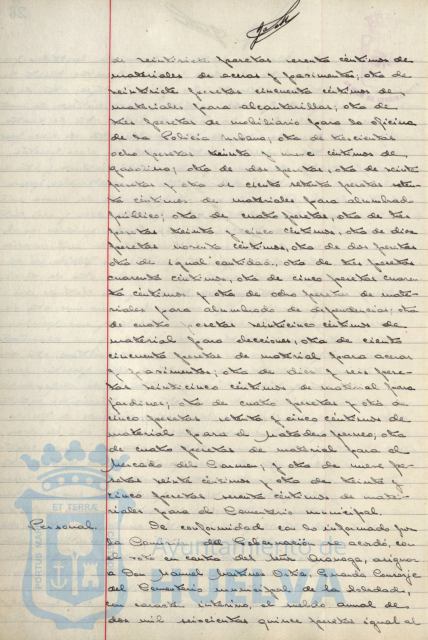 de veintisiete pesetas sesenta céntimos de
materiales de aceras y pavimentos; otra de
veintisiete pesetas cincuenta céntimos de
materiales para alcantarillas; otra de
tres pesetas de mobiliario para la oficina
de la Policía Urbana; otra de trescientas
ocho pesetas treinta y nueve céntimos de
gasolina; otra de dos pesetas, otra de veinte
pesetas y otra de ciento setenta pesetas
céntimos de materiales para alumbrado
público; otra de cuatro pesetas, otra de tres
pesetas treinta y cinco céntimos, otra de diez
pesetas noventa céntimos, otra de dos pesetas
otra de igual cantidad, otra de tres pesetas
cuarenta céntimos, otra de cinco pesetas cuaren
ta céntimos y otra de ocho pesetas de mate
riales para alumbrado de dependencias; otra
de cuatro pesetas veinticinco céntimos de
material para elecciones; otra de ciento
cincuenta pesetas de material para aceras
y pavimentos; otra de diez y seis pese
tas veinticinco céntimos de material para
jardines; otra de cuatro pesetas y otra de
cinco pesetas setenta y cinco céntimos de
material para el Matadero; otra
de cuatro pesetas de material para el
Mercado del Carmen; y otra de nueve pe
setas veinte céntimos y otra de treinta y
cinco pesetas sesenta céntimos de mate
riales para el Cementerio municipal.
Personal. De conformidad con lo informado por
la Comisión de Gobernación se acordó, con
el voto en contra del Señor, asignar
a Don Manuel Martínez Ortiz, Conserje
del Cementerio municipal de la Soledad,
con carácter interino, el sueldo anual de
dos mil seiscientas quince pesetas igual al
Ayuntamiento de
HUELVA
PORTUS MARIS ET TERRAE